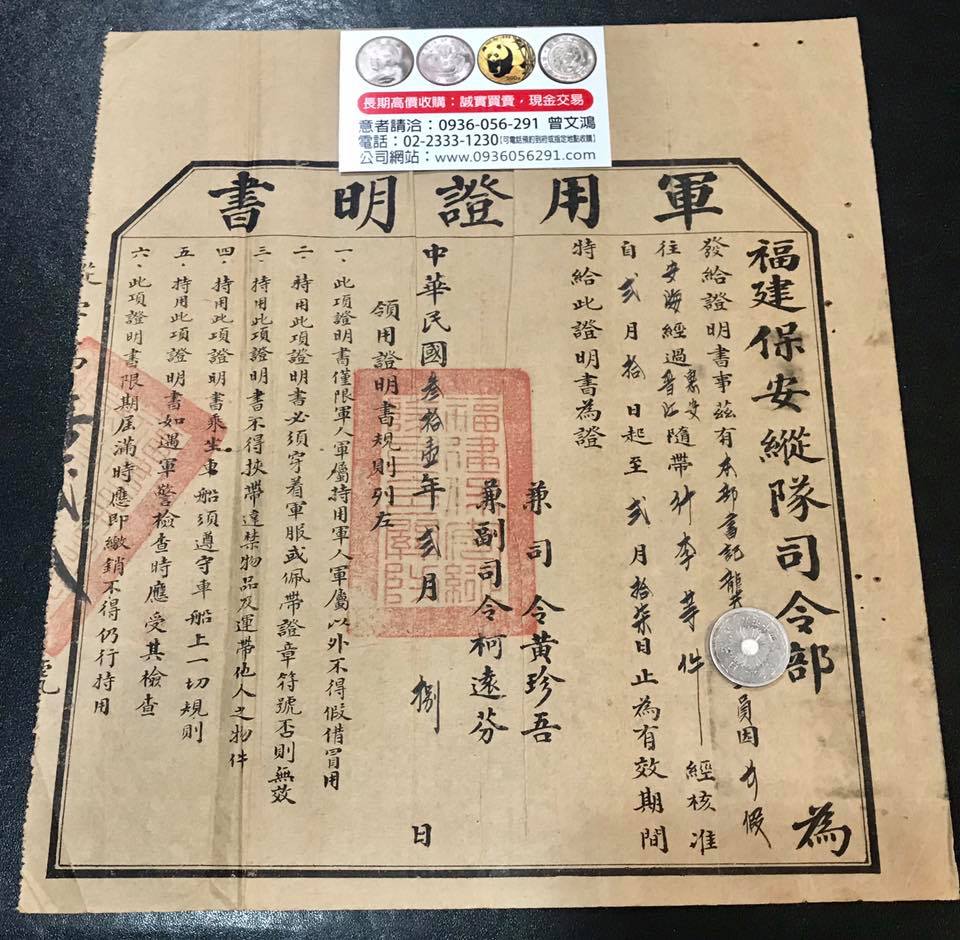 長期高價收購：誠實買賣，現金交易
意者請洽：0936-056-291 曾文鴻
電話：02-2333-1230【可電話預約到府或指定地點收購】
公司網站：www.0936056291.com
軍用證明書
福建保安縱隊司令部 為
發給證明書事茲有本部書記龔 員因 假
往安海經過惠安晉江隨帶行李等件 經核准
自弍月拾日起至弍月拾柒日止為有效期間
特給此證明書為證
兼司令黃珍吾
兼副司令柯遠芬
中華民國叁拾壹年弍月捌日
領用證明書規則列左
一、此項證明書僅限軍人軍屬持用軍人軍屬以外不得假借冒用
二、持用此項證明書必須穿着軍服或佩帶證章符號否則無效
三、持用此項證明書不得挾帶違禁物品及運帶他人之物件
四、持用此項證明書乘坐車船須遵守車船上一切規則
五、持用此項證明書如遇軍警檢查時應受其檢查
六、此項證明書限期屆滿時應即繳銷不得仍行持用